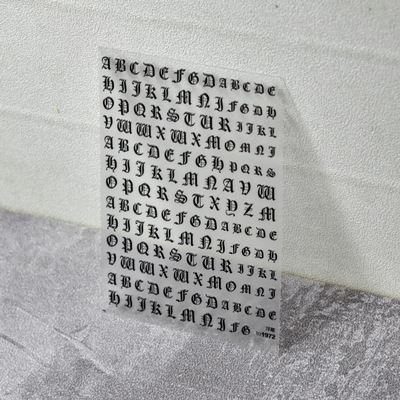 A B C D E F G D A B C D E
H I J K L M N I F G D H
O P Q R S T U R I J K L
V W W X W X M O M N J
A B C D E F G H P Q R S
H I J K L M N A V W
O P Q R S T X Y Z M
A B C D E F G D A B C D E
H I J K L M N I F G D H
O P Q R S T U R I J K L
V W W X W X M O M N J
A B C D E F G D A B C D E
H I J K L M N I F G
1972